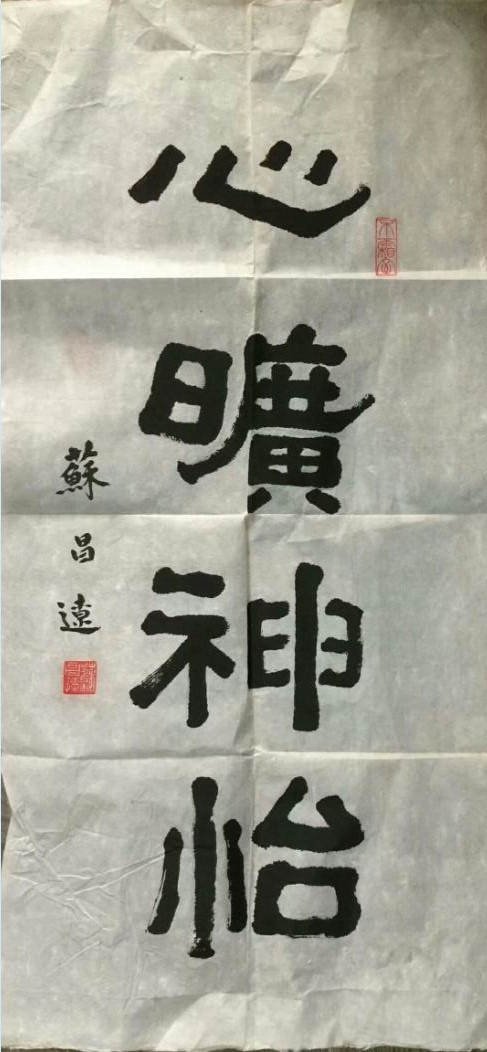 心曠神怡
蘇昌遼